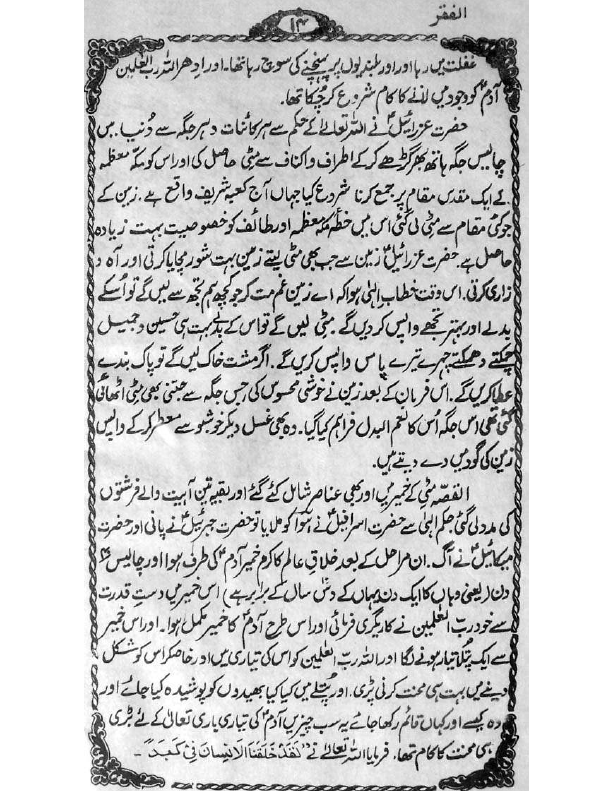 الفقر
۱۴
غفلت میں رہا اور اور بلندیوں پر پہنچنے کی سوچ رہا تھا۔ اور ادھر اللہ رب العلمین
آدمؑ کو وجود میں لانے کا کام شروع کر چکا تھا۔
حضرت عزرائیلؑ نے اللہ تعالیٰ کے حکم سے ہر کائنات و ہر جگہ سے دنیا۔ بس
چالیس جگہ ہاتھ بھر گڑھے کر کے اطراف و اکناف سے مٹی حاصل کی اور اس کو مکہ معظمہ
کے ایک مقدس مقام پر جمع کرنا شروع کیا جہاں آج کعبہ شریف واقع ہے۔ زمین کے
جو کئی مقام سے مٹی لی گئی اس میں خطہ مکہ معظمہ اور طائف کو خصوصیت بہت زیادہ
حاصل ہے۔ حضرت عزرائیلؑ زمین سے جب بھی مٹی لیتے زمین بہت شور مچایا کرتی اور آہ و
زاری کرتی۔ اس وقت خطاب الہٰی ہوا کہ اے زمین غم مت کر جو کچھ ہم تجھ سے لیں گے تو اسکے
بدلے اور بہتر تجھے واپس کر دیں گے۔ مٹی لیں گے تو اس کے بدلے بہت سی حسین و جمیل
چمکتے دھمکتے چہرے تیرے پاس واپس کریں گے۔ اگر مشت خاک لیں گے تو پاک بندے
عطا کریں گے۔ اس فرمان کے بعد زمین نے خوشی محسوس کی جس جگہ سے جتنی بھی مٹی اٹھائی
گئی تھی اس جگہ اُس کا نعم البدل فراہم کیا گیا۔ وہ بھی غسل دیکر خوشبو سے معطر کر کے واپس
زمین کی گود میں دے دیتے ہیں۔
القصہ مٹی کے خمیر میں اور بھی عناصر شامل کئے گئے اور بقیہ تین آہیت والے فرشتوں
کی مدد لی گئی حکم الہٰی سے حضرت اسرافیلؑ نے ہوا کو ملایا تو حضرت جبرئیلؑ نے پانی اور حضرت
میکائیلؑ نے آگ۔ ان مراحل کے بعد خلاق عالم کا کرم خمیر آدمؑ کی طرف ہوا اور چالیس
دن (یعنی وہاں کا ایک دن یہاں کے دس سال کے برابر ہے) اس خمیر میں دستِ قدرت
سے خود رب العلمین نے کاریگری فرمائی اور اس طرح آدمؑ کا خمیر مکمل ہوا۔ اور اس خمیر
سے ایک پُتلا تیار ہونے لگا اور اللہ رب العلمین کو اس کی تیاری میں اور خاصکر اس کو شکل
دینے میں بہت سی محنت کرنی پڑی۔ اور پُتلے میں کیا کیا بھیدوں کو پوشیدہ کیا جائے اور
وہ کیسے اور کہاں قائم رکھا جائے یہ سب چیزیں آدمؑ کی تیاری باری تعالیٰ کے لئے بڑی
ہی محنت کا کام تھا۔ فرمایا اللہ تعالیٰ نے "لَقَدْ خَلَقْنَا الْاِنْسَانَ فِیْ کَبَدٍ"۔